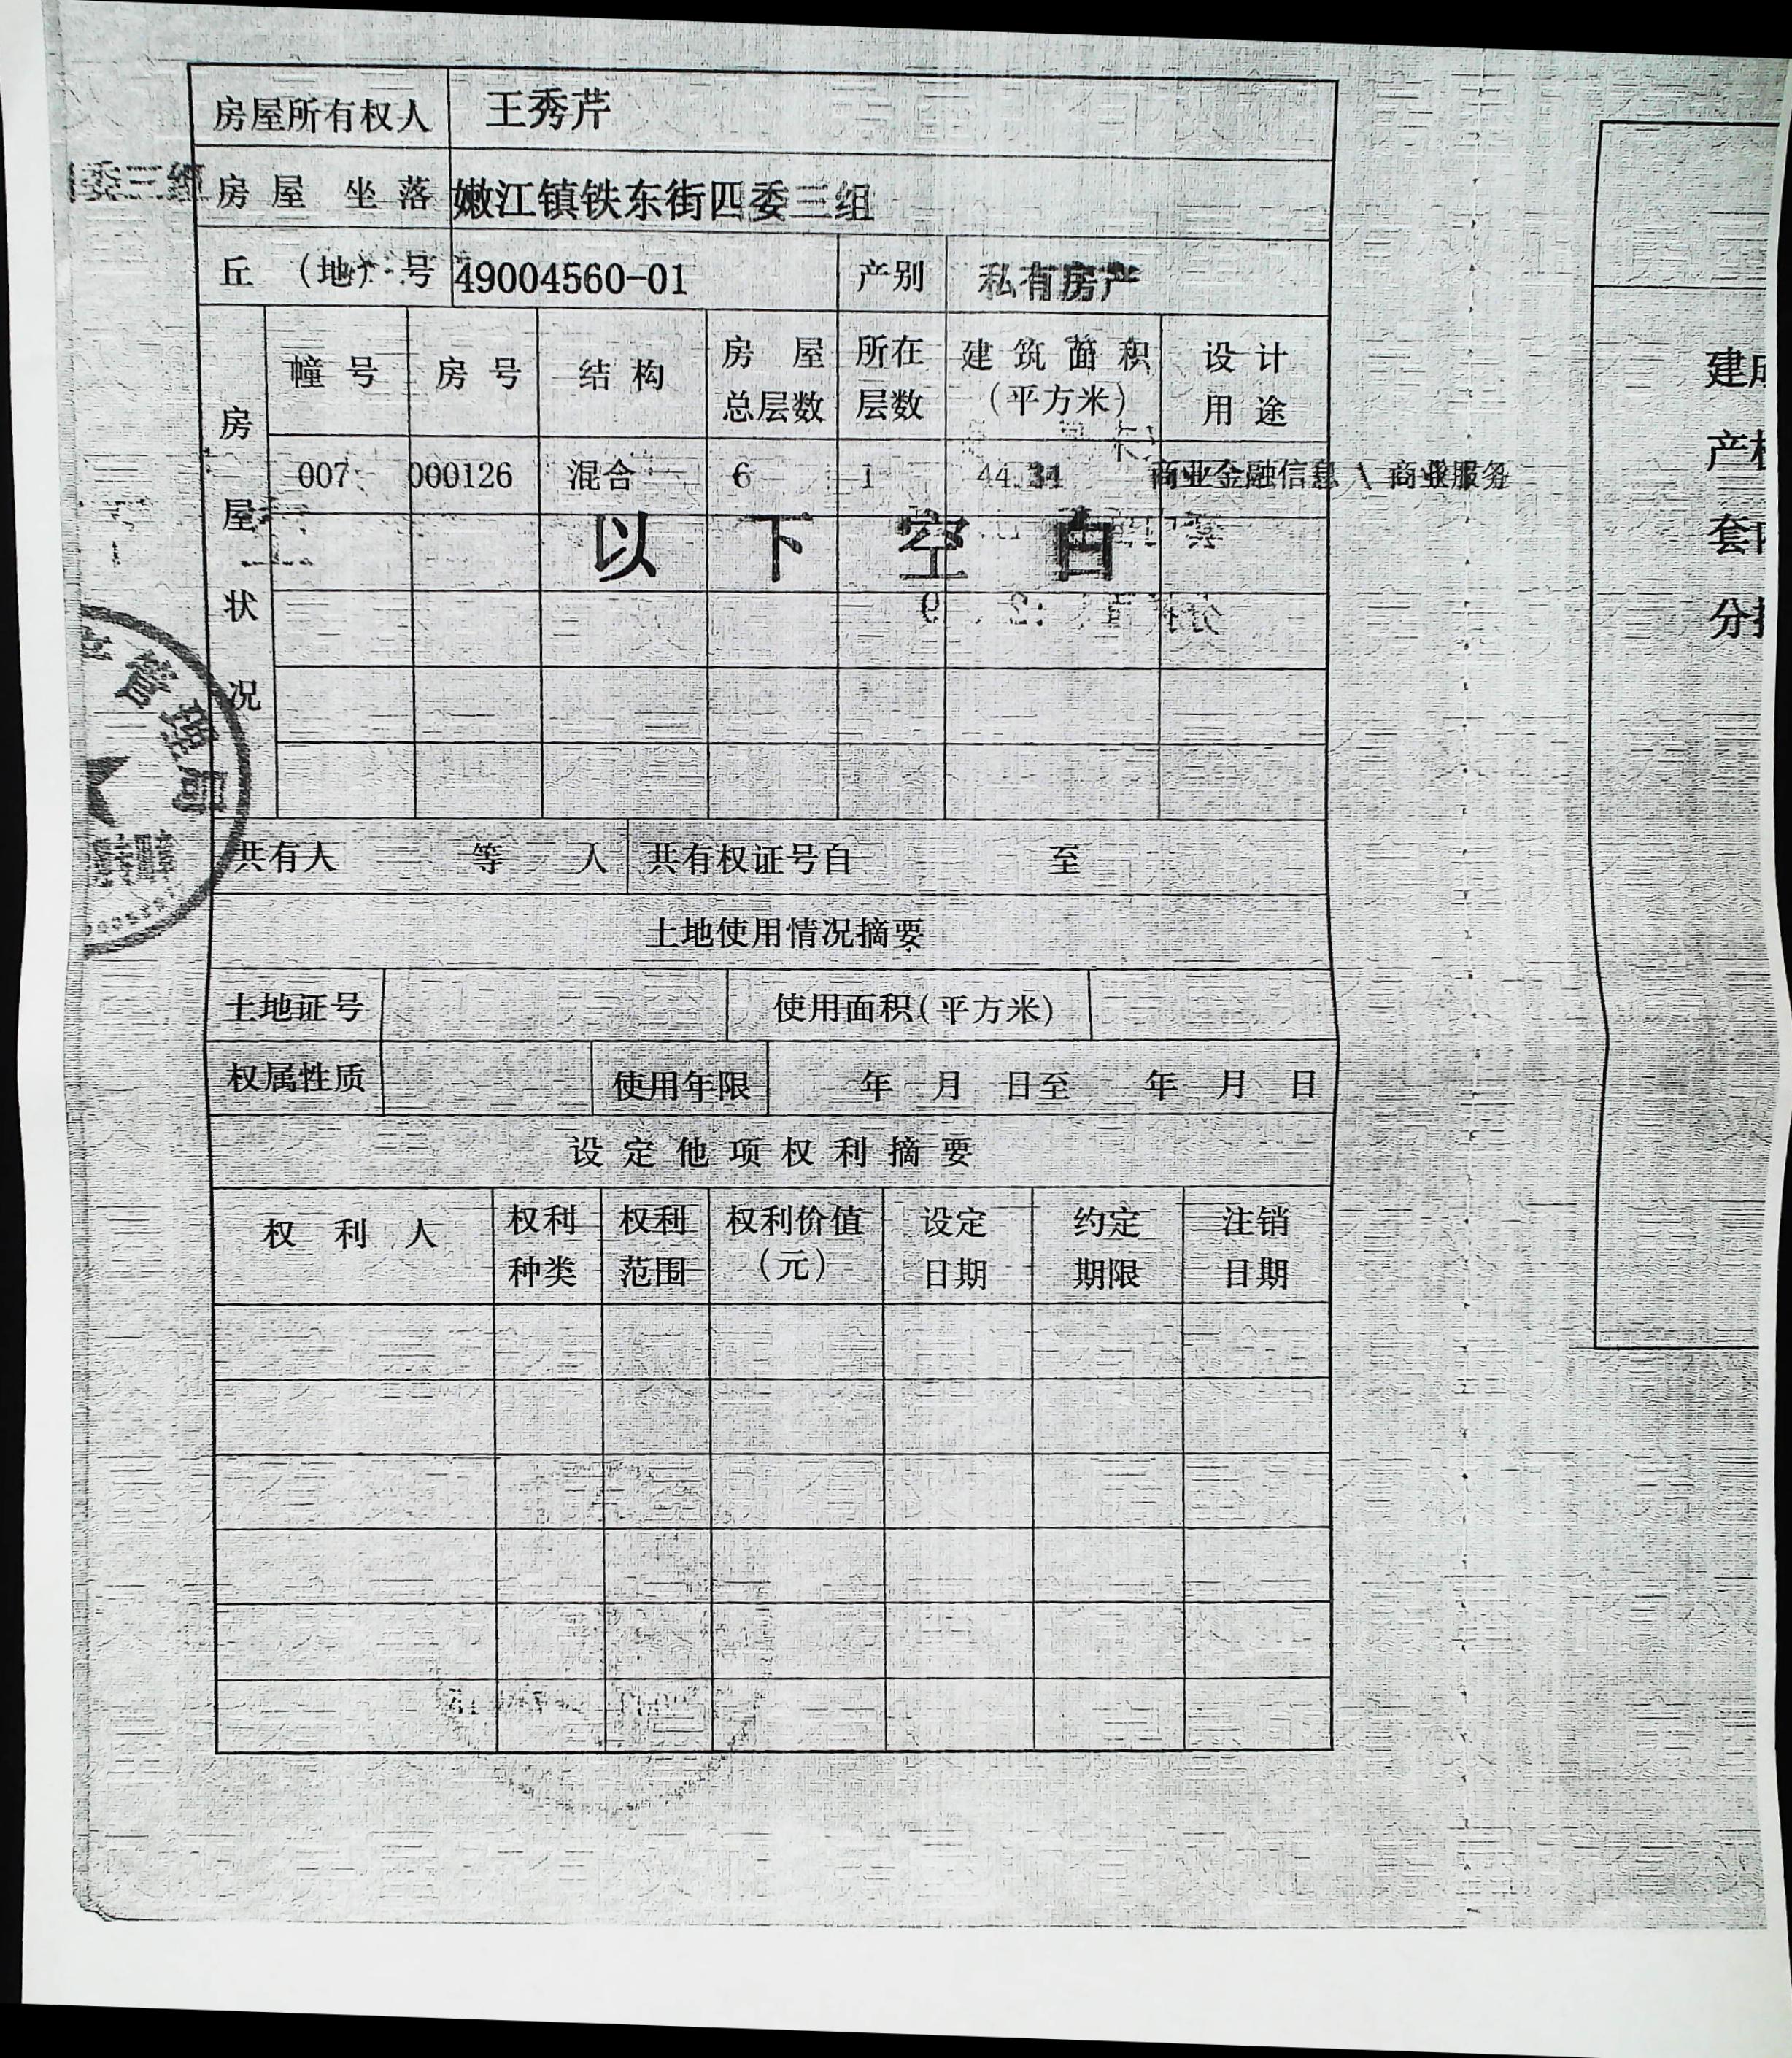 房屋所有权人 王秀芹
委三组
房屋坐落 嫩江镇铁东街四委三组
丘(地)号 49004560-01 产别 私有房产
房屋状况
幢号 房号 结构 房屋总层数 所在层数 建筑面积(平方米) 设计用途
007 000126 混合 6 1 44.34 商业金融信息 \ 商业服务
以下空白
管理局
共有人 等 人 共有权证号自 至
土地使用情况摘要
土地证号 使用面积(平方米)
权属性质 使用年限 年 月 日至 年 月 日
设定他项权利摘要
权利人 权利种类 权利范围 权利价值(元) 设定日期 约定期限 注销日期
建
产
套
分